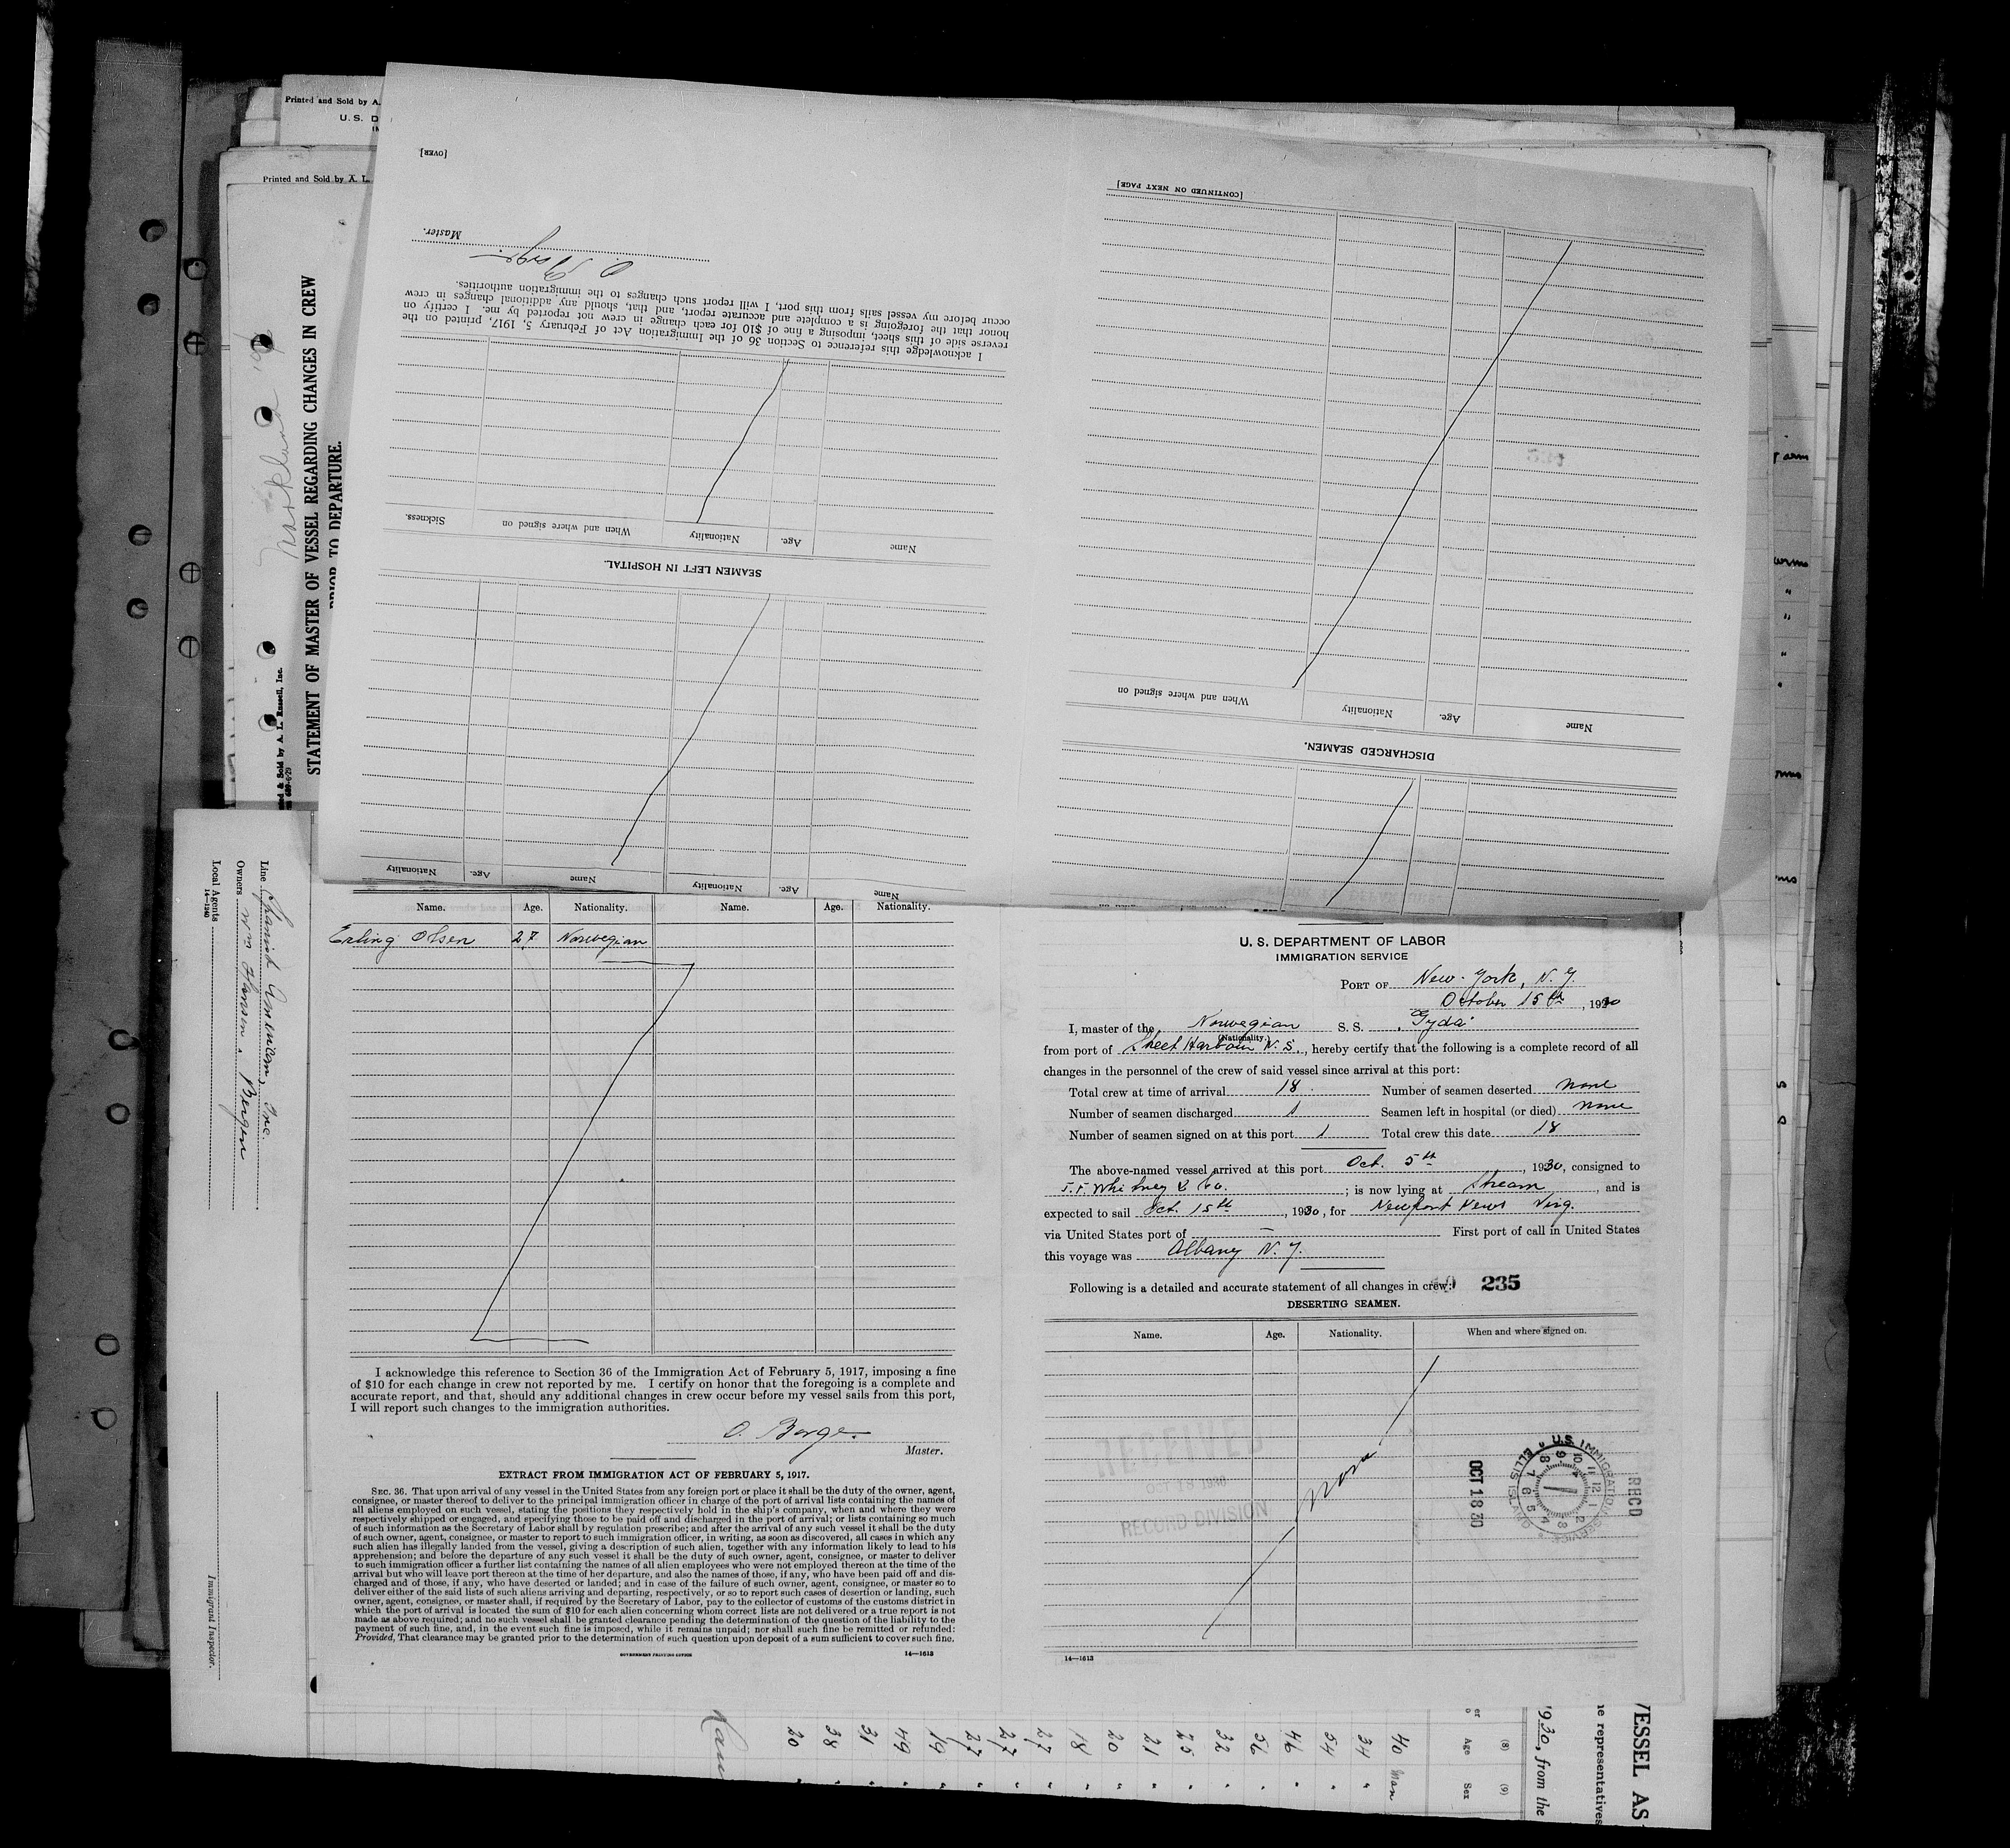 Printed and Sold by A.
U. S. D
Printed and Sold by A. L.
[OVER]
Master.
I acknowledge this reference to Section 36 of the Immigration Act of February 5, 1917, printed on the
reverse side of this sheet, imposing a fine of $10 for each change in crew not reported by me. I certify on
honor that the foregoing is a complete and accurate report, and that, should any additional changes in crew
occur before my vessel sails from this port, I will report such changes to the immigration authorities.
Sickness.
When and where signed on
Nationality
Age.
Name
SEAMEN LEFT IN HOSPITAL.
Nationality
Age.
Name
Nationality
Age.
Name
[CONTINUED ON NEXT PAGE]
When and where signed on
Nationality
Age.
Name
DISCHARGED SEAMEN.
STATEMENT OF MASTER OF VESSEL REGARDING CHANGES IN CREW
PRIOR TO DEPARTURE.
& Sold by A. L. Russell, Inc.
Line
Inc.
Owners Wm Hansen, Bergen
Local Agents
14-1240
Immigrant Inspector.
Name. Age. Nationality. Name. Age. Nationality.
Erling Olsen 27 Norwegian
I acknowledge this reference to Section 36 of the Immigration Act of February 5, 1917, imposing a fine
of $10 for each change in crew not reported by me. I certify on honor that the foregoing is a complete and
accurate report, and that, should any additional changes in crew occur before my vessel sails from this port,
I will report such changes to the immigration authorities.
O. Borge.
Master.
EXTRACT FROM IMMIGRATION ACT OF FEBRUARY 5, 1917.
SEC. 36. That upon arrival of any vessel in the United States from any foreign port or place it shall be the duty of the owner, agent,
consignee, or master thereof to deliver to the principal immigration officer in charge of the port of arrival lists containing the names of
all aliens employed on such vessel, stating the positions they respectively hold in the ship's company, when and where they were
respectively shipped or engaged, and specifying those to be paid off and discharged in the port of arrival; or lists containing so much
of such information as the Secretary of Labor shall by regulation prescribe; and after the arrival of any such vessel it shall be the duty
of such owner, agent, consignee, or master to report to such immigration officer, in writing, as soon as discovered, all cases in which any
such alien has illegally landed from the vessel, giving a description of such alien, together with any information likely to lead to his
apprehension; and before the departure of any such vessel it shall be the duty of such owner, agent, consignee, or master to deliver
to such immigration officer a further list containing the names of all alien employees who were not employed thereon at the time of the
arrival but who will leave port thereon at the time of her departure, and also the names of those, if any, who have been paid off and dis-
charged and of those, if any, who have deserted or landed; and in case of the failure of such owner, agent, consignee, or master so to
deliver either of the said lists of such aliens arriving and departing, respectively, or so to report such cases of desertion or landing, such
owner, agent, consignee, or master shall, if required by the Secretary of Labor, pay to the collector of customs of the customs district in
which the port of arrival is located the sum of $10 for each alien concerning whom correct lists are not delivered or a true report is not
made as above required; and no such vessel shall be granted clearance pending the determination of the question of the liability to the
payment of such fine, and, in the event such fine is imposed, while it remains unpaid; nor shall such fine be remitted or refunded:
Provided, That clearance may be granted prior to the determination of such question upon deposit of a sum sufficient to cover such fine.
GOVERNMENT PRINTING OFFICE 14—1613
U. S. DEPARTMENT OF LABOR
IMMIGRATION SERVICE
PORT OF New-York, N. Y.
October 15th, 1930
I, master of the Norwegian S. S. "Gyda"
(Nationality.)
from port of Sheet Harbour N. S., hereby certify that the following is a complete record of all
changes in the personnel of the crew of said vessel since arrival at this port:
Total crew at time of arrival 18 Number of seamen deserted none
Number of seamen discharged 1 Seamen left in hospital (or died) none
Number of seamen signed on at this port 1 Total crew this date 18
The above-named vessel arrived at this port Oct. 5th, 1930, consigned to
J. F. Whitney & Co.; is now lying at Stream, and is
expected to sail Oct. 15th, 1930, for Newport News Virg.
via United States port of — First port of call in United States
this voyage was Albany N. Y.
Following is a detailed and accurate statement of all changes in crew:
235
DESERTING SEAMEN.
Name. Age. Nationality. When and where signed on.
None
RECEIVED
OCT 18 1930
RECORD DIVISION
OCT 18 30
U.S. IMMIGRATION SERVICE ELLIS ISLAND
12 1 2 3 4 5 6 7 8 9 10 11
RECD
14—1613
20 38 31 49 19 27 27 27 18 20 21 25 32 56 46 54 34 40 Man
Age
Sex
(8)
(9)
1930, from the
representatives
VESSEL AS